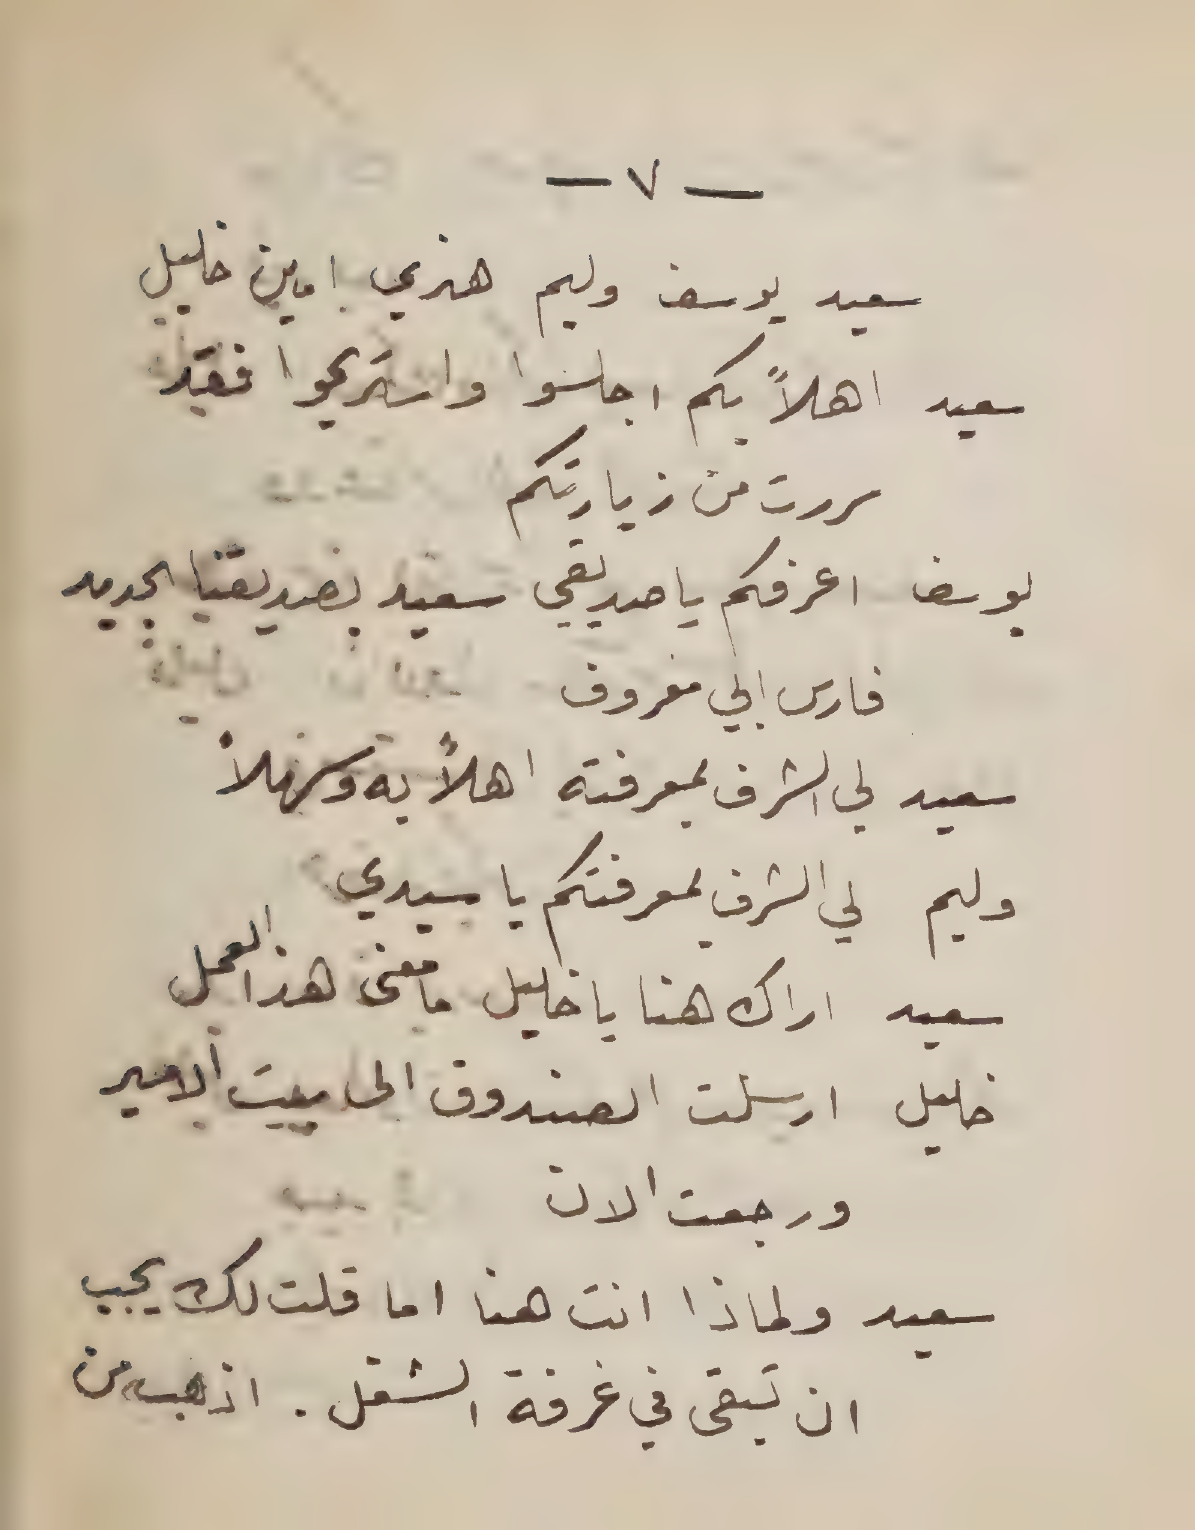 — ٧ —
سعيد يوسف وليم هنري امين خليل
سعيد اهلاً بكم اجلسوا واستريحوا فقد
سررت من زيارتكم
يوسف اعرفكم يا صديقي سعيد بصديقنا الجديد
فارس ابي معروف
سعيد لي الشرف بمعرفته اهلاً به وسهلاً
وليم لي الشرف بمعرفتكم يا سيدي
سعيد اراك هنا يا خليل ما معنى هذا العمل
خليل ارسلت الصندوق الى بيت الامير
ورجعت الان
سعيد ولماذا انت هنا اما قلت لك يجب
ان تبقى في غرفة الشغل . اذهب من